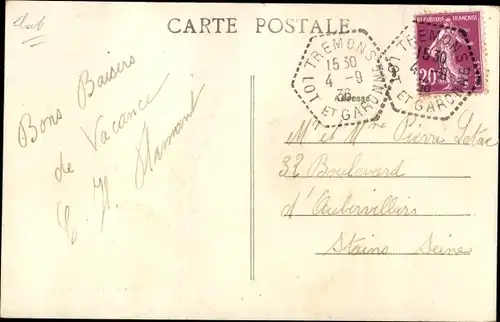 CARTE POSTALE
Bons Baisers
de Vacance
TREMONS
15 30
4 - 9
36
LOT ET GARONNE
REPUBLIQUE FRANÇAISE
20
TREMONS
15 30
4 - 9
LOT ET GARONNE
Adresse
M et Mme Pierre
32 Boulevard
d'Aubervilliers
Stains Seine